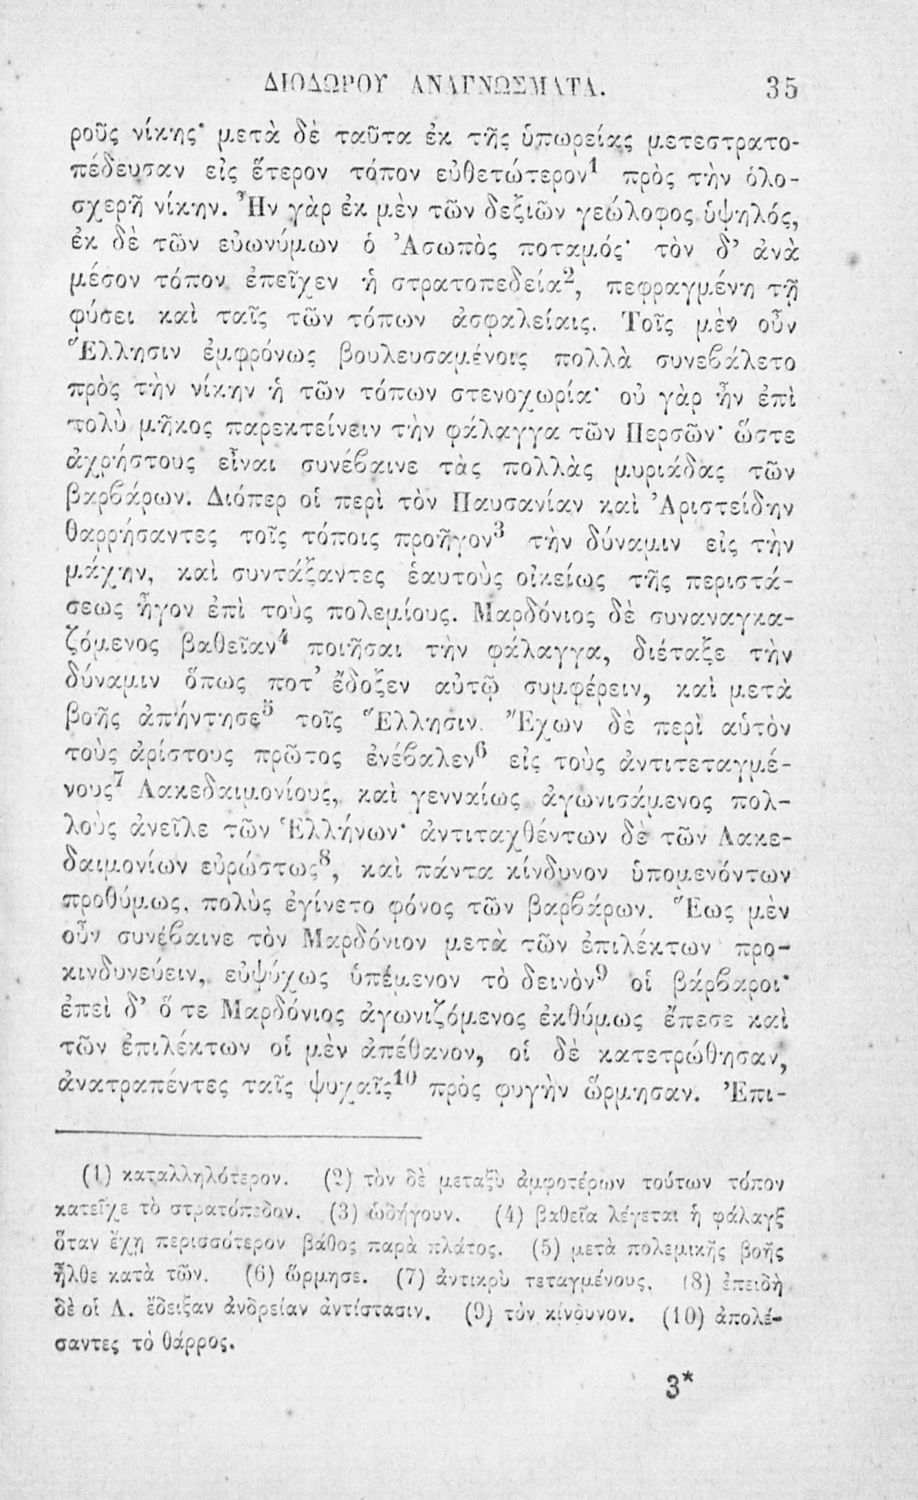 ΔΙΟΔΩΡΟΥ ΑΝΑΓΝΩΣΜΑΤΑ. 35
ροῦς νίκης· μετὰ δὲ ταῦτα ἐκ τῆς ὑπωρείας μετεστρατο-
πέδευσαν εἰς ἕτερον τόπον εὐθετώτερον¹ πρὸς τὴν ὁλο-
σχερῆ νίκην. Ἦν γὰρ ἐκ μὲν τῶν δεξιῶν γεώλοφος ὑψηλός,
ἐκ δὲ τῶν εὐωνύμων ὁ Ἀσωπὸς ποταμός· τὸν δ’ ἀνὰ
μέσον τόπον ἐπεῖχεν ἡ στρατοπεδεία², πεφραγμένη τῇ
φύσει καὶ ταῖς τῶν τόπων ἀσφαλείαις. Τοῖς μὲν οὖν
Ἕλλησιν ἐμφρόνως βουλευσαμένοις πολλὰ συνεβάλετο
πρὸς τὴν νίκην ἡ τῶν τόπων στενοχωρία· οὐ γὰρ ἦν ἐπὶ
πολὺ μῆκος παρεκτείνειν τὴν φάλαγγα τῶν Περσῶν· ὥστε
ἀχρήστους εἶναι συνέβαινε τὰς πολλὰς μυριάδας τῶν
βαρβάρων. Διόπερ οἱ περὶ τὸν Παυσανίαν καὶ Ἀριστείδην
θαρρήσαντες τοῖς τόποις προῆγον³ τὴν δύναμιν εἰς τὴν
μάχην, καὶ συντάξαντες ἑαυτοὺς οἰκείως τῆς περιστά-
σεως ἦγον ἐπὶ τοὺς πολεμίους. Μαρδόνιος δὲ συναναγκα-
ζόμενος βαθεῖαν⁴ ποιῆσαι τὴν φάλαγγα, διέταξε τὴν
δύναμιν ὅπως ποτ’ ἔδοξεν αὐτῷ συμφέρειν, καὶ μετὰ
βοῆς ἀπήντησε⁵ τοῖς Ἕλλησιν. Ἔχων δὲ περὶ αὑτὸν
τοὺς ἀρίστους πρῶτος ἐνέβαλεν⁶ εἰς τοὺς ἀντιτεταγμέ-
νους⁷ Λακεδαιμονίους, καὶ γενναίως ἀγωνισάμενος πολ-
λοὺς ἀνεῖλε τῶν Ἑλλήνων· ἀντιταχθέντων δὲ τῶν Λακε-
δαιμονίων εὐρώστως⁸, καὶ πάντα κίνδυνον ὑπομενόντων
προθύμως, πολὺς ἐγίνετο φόνος τῶν βαρβάρων. Ἕως μὲν
οὖν συνέβαινε τὸν Μαρδόνιον μετὰ τῶν ἐπιλέκτων προ-
κινδυνεύειν, εὐψύχως ὑπέμενον τὸ δεινὸν⁹ οἱ βάρβαροι·
ἐπεὶ δ’ ὅ τε Μαρδόνιος ἀγωνιζόμενος ἐκθύμως ἔπεσε καὶ
τῶν ἐπιλέκτων οἱ μὲν ἀπέθανον, οἱ δὲ κατετρώθησαν,
ἀνατραπέντες ταῖς ψυχαῖς¹⁰ πρὸς φυγὴν ὥρμησαν. Ἐπι-
(1) καταλληλότερον. (2) τὸν δὲ μεταξὺ ἀμφοτέρων τούτων τόπον
κατεῖχε τὸ στρατόπεδον. (3) ὡδήγουν. (4) βαθεῖα λέγεται ἡ φάλαγξ
ὅταν ἔχῃ περισσότερον βάθος παρὰ πλάτος. (5) μετὰ πολεμικῆς βοῆς
ἦλθε κατὰ τῶν. (6) ὥρμησε. (7) ἀντικρὺ τεταγμένους. (8) ἐπειδὴ
δὲ οἱ Λ. ἔδειξαν ἀνδρείαν ἀντίστασιν. (9) τὸν κίνδυνον. (10) ἀπολέ-
σαντες τὸ θάρρος.
3*